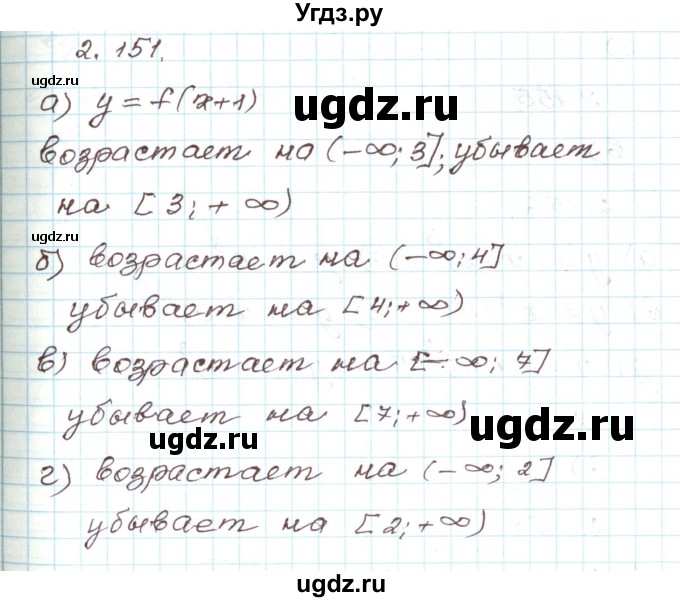 Угдз.ру
2. 151.
ugdz.ru
а) y = f(x+1)
ugdz.ru
возрастает на (-∞; 3]; убывает
на [3; +∞)
ugdz.ru
б) возрастает на (-∞; 4]
убывает на [4; +∞)
в) возрастает на [-∞; 7]
убывает на [7; +∞)
ugdz.ru
ugdz.ru
г) возрастает на (-∞; 2]
убывает на [2; +∞)
ugdz.ru